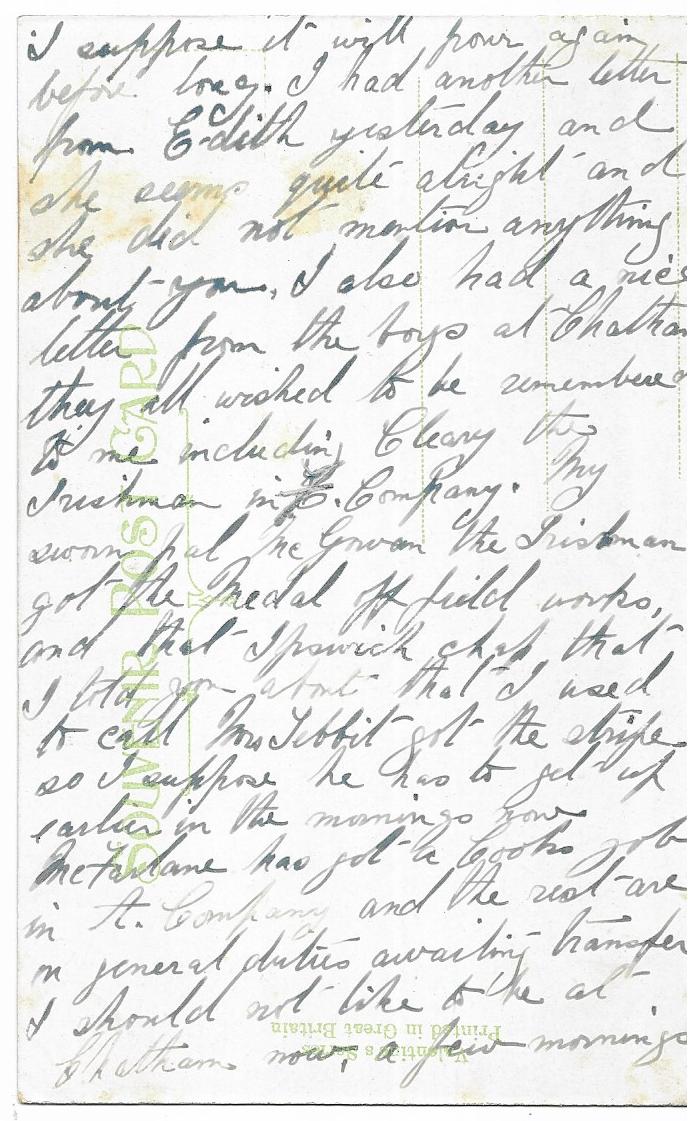 I suppose it will pour again
before long. I had another letter
from Edith yesterday and
she seems quite alright and
she did not mention anything
about you, I also had a nice
letter from the boys at Chatham
they all wished to be remembered
to me including Cleary the
Irishman in Company. My
sworn pal McGowan the Irishman
got the Medal off field works,
and that Ipswich chap that
I told you about that I used
to call Mrs Tebbit got the stripe
so I suppose he has to get up
earlier in the mornings now
McFarlane has got a Cooks job
in A. Company and the rest are
on general duties awaiting transfer
I should not like to be at
Chatham now, a few mornings
SOUVENIR POST CARD
Valentine's Series
Printed in Great Britain